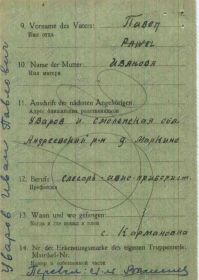 9. Vorname des Vaters: Павел
Имя отца PAWEL
10. Name der Mutter: Иванова
Имя матери
11. Anschrift der nächsten Angehörigen:
Адрес ближайших родственников
Уваров и Смоленская обл.
Андреевский р-н д. Маркино
12. Beruf: слесарь-авио-приборист.
Профессия
13. Wann und wo gefangen:
Когда и где
с. Карманова
14. Nr. der Erkennungsmarke des eigenen Truppenteils:
Matrikel-Nr.
Номер
Уваров Иван Павлович